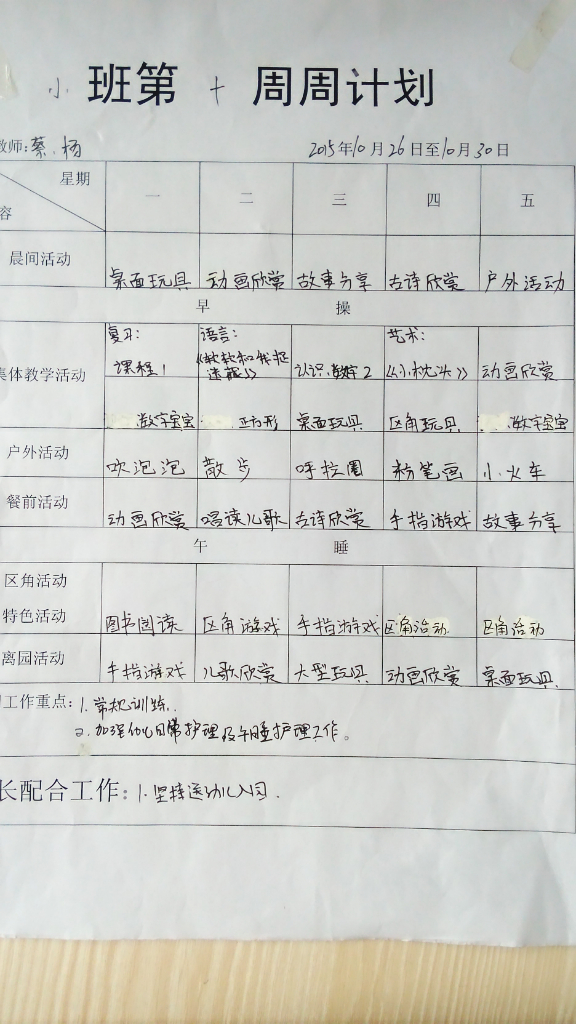 小 班第 十 周周计划
教师:蔡、杨 2015年10月26日至10月30日
星期 一 二 三 四 五
容
晨间活动 桌面玩具 动画欣赏 故事分享 古诗欣赏 户外活动
早 操
复习: 语言: 艺术:
集体教学活动 课程1 认识数字2 《小枕头》 动画欣赏
数字宝宝 正方形 桌面玩具 区角玩具 数字宝宝
户外活动 吹泡泡 散步 呼拉圈 粉笔画 小火车
餐前活动 动画欣赏 唱读儿歌 古诗欣赏 手指游戏 故事分享
午 睡
区角活动
特色活动 图书阅读 区角游戏 手指游戏 区角活动 区角活动
离园活动 手指游戏 儿歌欣赏 大型玩具 动画欣赏 桌面玩具
工作重点: 1.常规训练.
2.加强幼儿日常护理及午睡护理工作。
长配合工作: 1.坚持送幼儿入园.